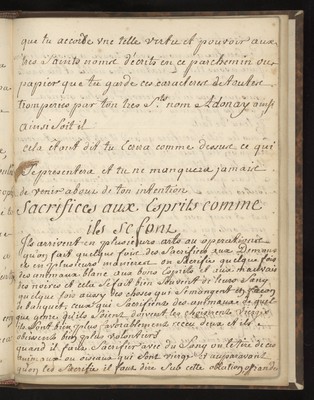 que tu accorde une telle vertu et pouvoir aux
tres Saints noms décrits en ce parchemin ou
papier que tu garde ces caracteres de toutes
tromperies par ton tres St nom Adonay
ainsi soit il
cela étant dit tu comme dessus ce qui
Se presentera et tu ne manquera jamais
de venir about de ton intention
Sacrifices aux Esprits comme
ils se font
Ils arrivent en plusieurs arts ou operations
qu'on fait quelque fois des Sacrifices aux Demons
et en plusieurs manieres on Sacrifie quelque fois
des animaux blanc aux bons Esprits et aux mauvais
des noires et cela se fait bien Souvent de leurs Sang
quelque fois aussy des choses qui se mangent
ceux qui Sacrifient des animaux de quel
que genre qu'ils Soient doivent les choisir
ils Sont bien plus favorablement receu deux et ils
obeissent bien plus volontiers
quand il faut Sacrifier avec du Sang
ou oiseaux qui Sont vierge et auparavant
quon les Sacrifie il faut dire Sub cette oblation